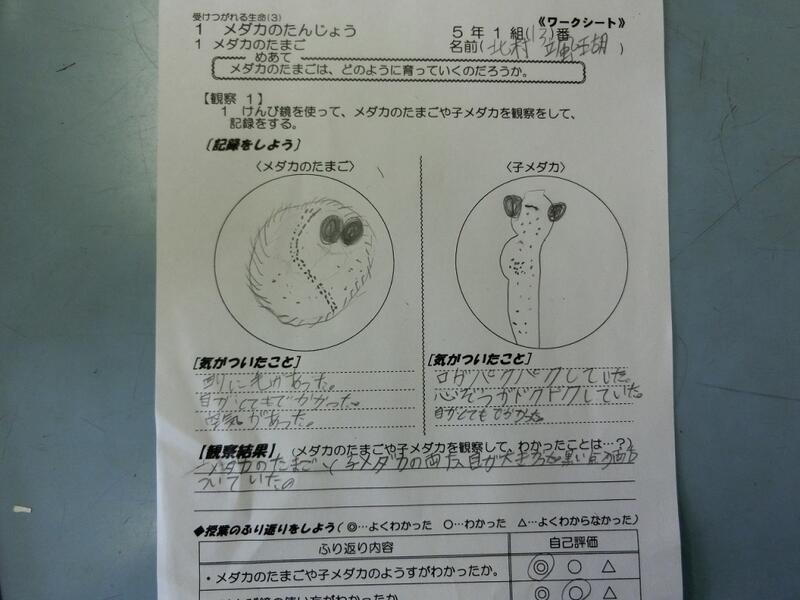 受けつがれる生命(3)
《ワークシート》
1 メダカのたんじょう
5年1組(13)番
1 メダカのたまご
名前(北村 )
めあて
メダカのたまごは、どのように育っていくのだろうか。
【観察 1】
1 けんび鏡を使って、メダカのたまごや子メダカを観察をして、
記録をする。
[記録をしよう]
〈メダカのたまご〉
〈子メダカ〉
[気がついたこと]
周りに毛があった。
目がとてもでかかった。
空気があった。
[気がついたこと]
口がパクパクしていた。
心ぞうがドクドクしていた。
目がとてもでかかった。
【観察結果】(メダカのたまごや子メダカを観察して、わかったことは…?)
メダカのたまごと子メダカの両方、目が大きい 黒い点
ついていた。
◆授業のふり返りをしよう(◎…よくわかった ○…わかった △…よくわからなかった)
ふり返り内容 自己評価
・メダカのたまごや子メダカのようすがわかったか。 ◎ ○ △
の使い方がわかったか ◎ ○ △